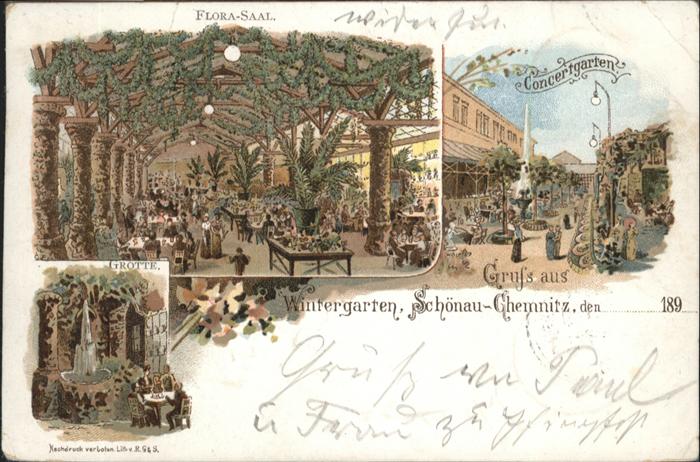 FLORA-SAAL.
wieder zur.
Concertgarten.
GROTTE.
Gruß aus
Wintergarten, Schönau-Chemnitz, den 189
Gruß von Paul
u Frau zu Pfingsten
Nachdruck verboten. Lith. v. R. G & S.